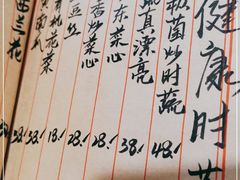 健康时
菌炒时蔬 48.
真漂亮 38.
东菜心 28.
炒菜心 28.
豆丝 18.
有机花菜 38.
38.
西兰花